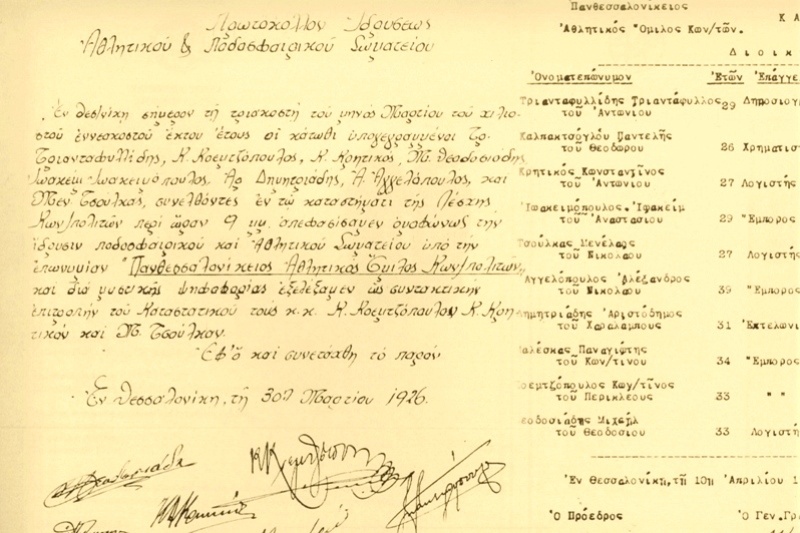 Πρωτόκολλον Ἱδρύσεως
Ἀθλητικοῦ & Ποδοσφαιρικοῦ Σωματείου
Ἐν Θεσ/νίκη σήμερον τῇ τριακοστῇ τοῦ μηνὸς Μαρτίου τοῦ χιλιο-
στοῦ ἐννεακοστοῦ ἑκτου ἔτους οἱ κάτωθι ὑπογεγραμμένοι Τρ.
Τριανταφυλλίδης, Κ. Κρεμτζόπουλος, Κ. Κρητικός, Μ. Θεοδοσιάδης
Ἰωακεὶμ Ἰωακειμόπουλος, Ἀρ. Δημητριάδης, Ἀ. Ἀγγελόπουλος, καὶ
Μεν. Τσούλκας, συνελθόντες ἐν τῷ καταστήματι τῆς Λέσχης
Κων/πολιτῶν περὶ ὥραν 9 μμ. ἀπεφασίσαμεν ὁμοφώνως τὴν
ἵδρυσιν ποδοσφαιρικοῦ καὶ Ἀθλητικοῦ Σωματείου ὑπὸ τὴν
ἐπωνυμίαν "Πανθεσσαλονίκειος Ἀθλητικὸς Ὅμιλος Κων/πολιτῶν"
καὶ διὰ μυστικῆς ψηφοφορίας ἐξελέξαμεν ὡς συντακτικὴν
ἐπιτροπὴν τοῦ Καταστατικοῦ τοὺς κ.κ. Κ. Κρεμτζόπουλον Κ. Κρη-
τικὸν καὶ Μ. Τσούλκαν.
Ἐφ' ᾧ καὶ συνετάχθη τὸ παρόν
Ἐν Θεσσαλονίκη, τῇ 30ῇ Μαρτίου 1926.
Πανθεσσαλονίκειος
Ἀθλητικός Ὅμιλος Κων/τῶν.
Κ Α
Δ ι ο ι κ
Ὀνοματεπώνυμον Ἐτῶν Ἐπάγγε
Τριανταφυλλίδης Τριαντάφυλλος 29 Δημοσιογ
τοῦ Ἀντωνίου
Καλπακτσόγλου Παντελῆς
τοῦ Θεοδώρου 26 Χρηματισ
Κρητικός Κωνσταντῖνος
τοῦ Ἀντωνίου 27 Λογιστής
Ἰωακειμόπουλος Ἰωακείμ
τοῦ Ἀναστασίου 29 Ἔμπορος
Τσούλκας Μενέλαος
τοῦ Νικολάου 27 Λογιστή
Ἀγγελόπουλος Ἀλέξανδρος
τοῦ Νικολάου 39 "Εμπορος
ημητριάδης Ἀριστόδημος
τοῦ Χαραλάμπους 31 Ἐκτελωνι
αλέσκας Παναγιώτης
τοῦ Κων/τίνου 34 "Εμπορος
ρεμτζόπουλος Κων/τῖνος
τοῦ Περικλέους 33 " "
εοδοσιάδης Μιχαήλ
τοῦ Θεοδοσίου 33 Λογιστή
Ἐν Θεσσαλονίκῃ, τῇ 10ῃ Ἀπριλίου 1
Ὁ Πρόεδρος Ὁ Γεν.Γρ